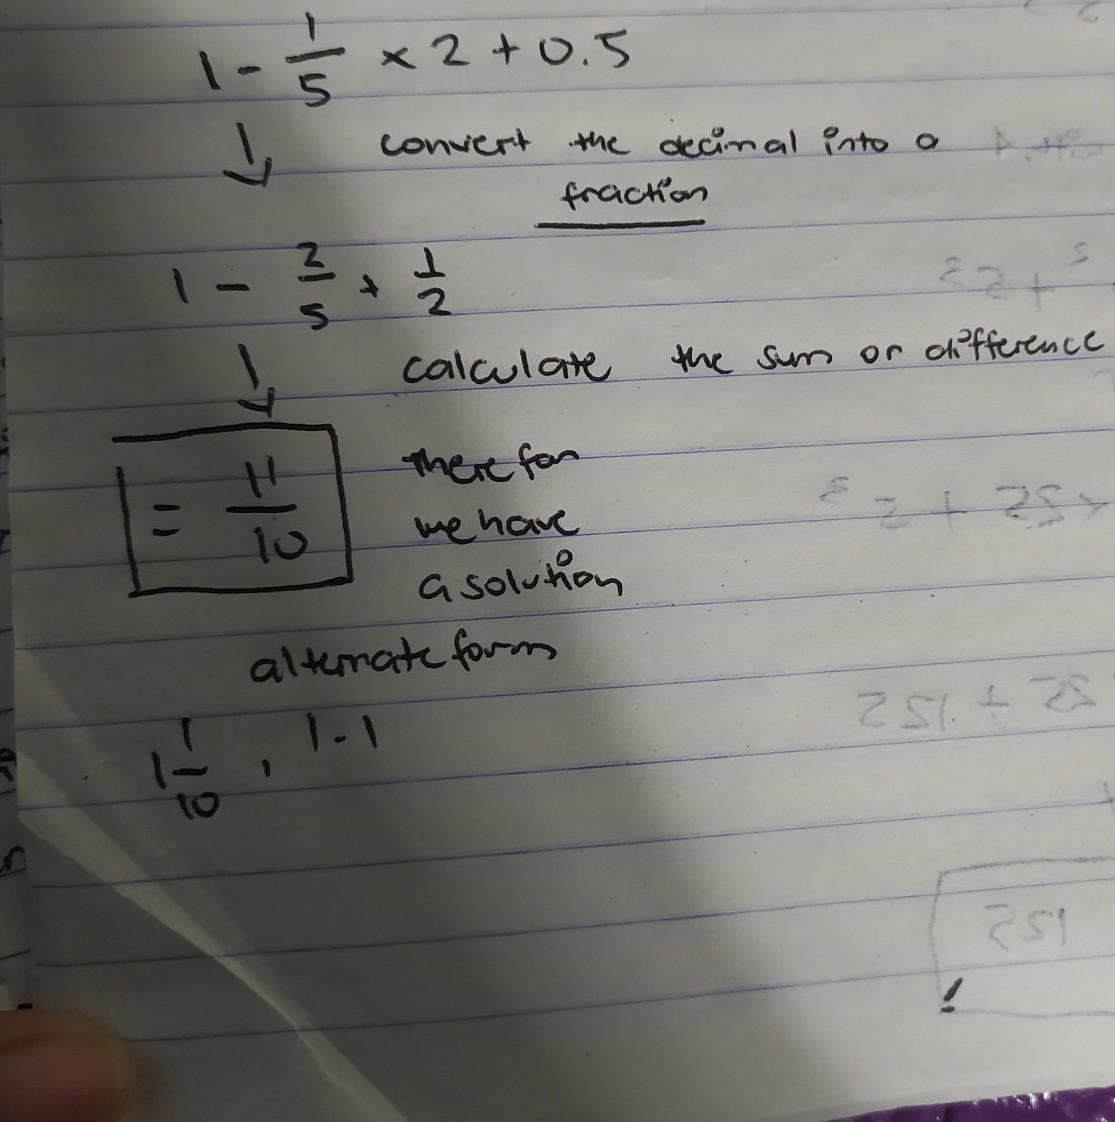 1 - 1/5 × 2 + 0.5
convert the decimal into a
fraction
1 - 2/5 + 1/2
calculate the sum or difference
= 11/10
therefor
we have
a solution
alternate form
1 1/10 , 1.1